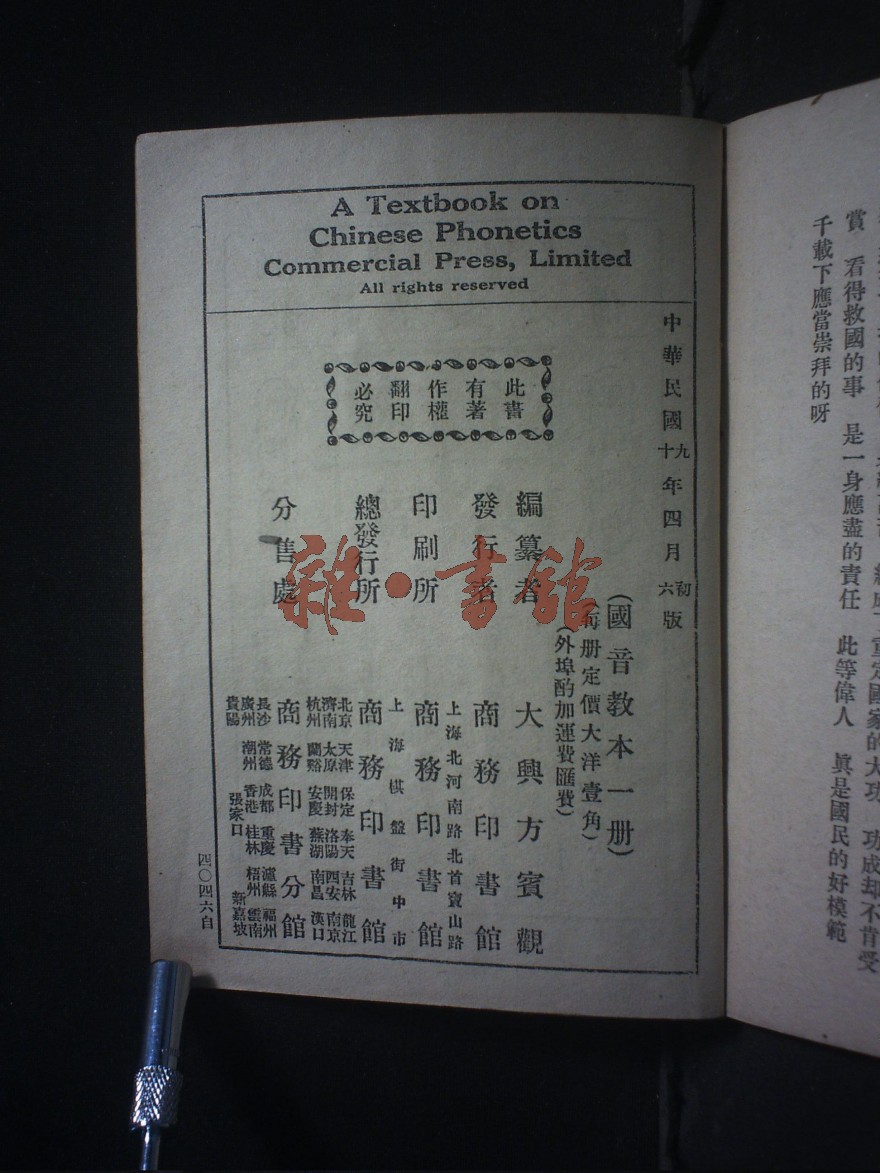 A Textbook on
Chinese Phonetics
Commercial Press, Limited
All rights reserved
中華民國九十年四月初六版
此書
有著
作權
翻印
必究
(國音教本一册)
(每册定價大洋壹角)
(外埠酌加運費匯費)
編纂者 大興方賓觀
發行者 商務印書館
上海北河南路北首寶山路
印刷所 商務印書館
上海棋盤街中市
總發行所 商務印書館
北京 天津 保定 奉天 吉林 龍江
濟南 太原 開封 洛陽 西安 南京
杭州 蘭谿 安慶 蕪湖 南昌 漢口
分售處 商務印書分館
長沙 常德 成都 重慶 瀘縣 福州
廣州 潮州 香港 桂林 梧州 雲南
貴陽 張家口 新嘉坡
四〇四六自
雜·書館
重定國家的大功 功成却不肯受
賞 看得救國的事 是一身應盡的責任 此等偉人 眞是國民的好模範
千載下應當崇拜的呀